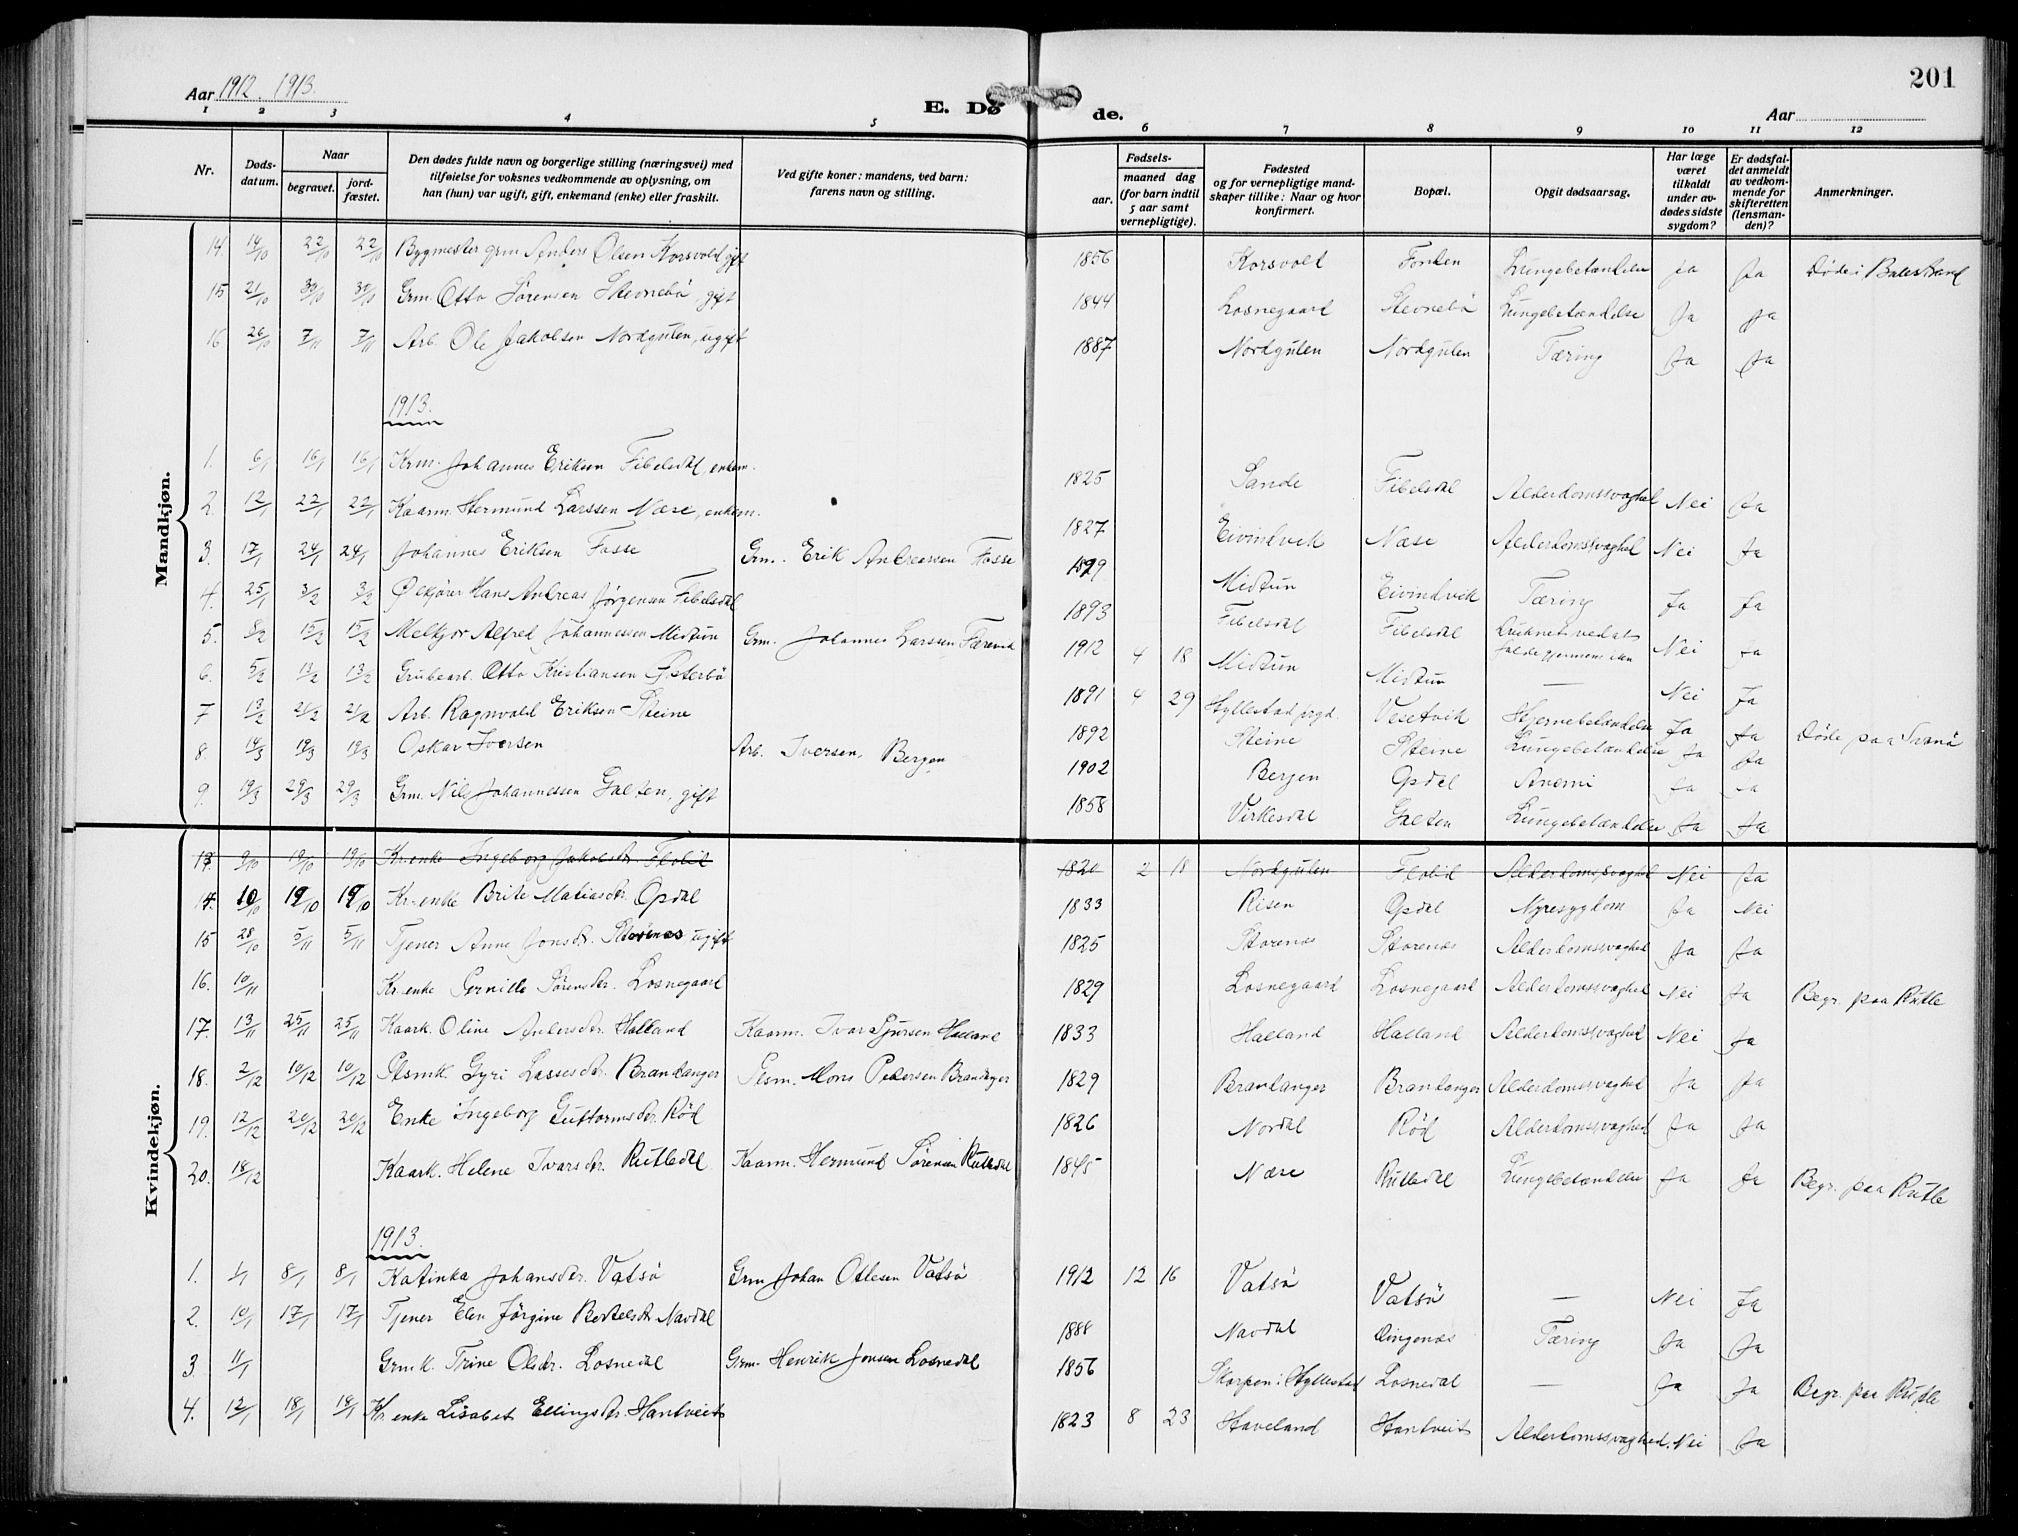 Aar 1912. 1913.
E. Dø de.
Aar
201
1 2 3 4 5 6 7 8 9 10 11 12
Nr.
Døds-datum.
Naar
begravet.
jord-fæstet.
Den dødes fulde navn og borgerlige stilling (næringsvei) med tilføielse for voksnes vedkommende av oplysning, om han (hun) var ugift, gift, enkemand (enke) eller fraskilt.
Ved gifte koner: mandens, ved barn: farens navn og stilling.
Fødsels-
aar.
maaned dag (for barn indtil 5 aar samt vernepligtige).
Fødested og for vernepligtige mandskaper tillike: Naar og hvor konfirmert.
Bopæl.
Opgit dødsaarsag.
Har læge været tilkaldt under av-dødes sidste sygdom?
Er dødsfal-det anmeldt av vedkom-mende for skifteretten (lensman-den)?
Anmerkninger.
Mandkjøn.
14. 14/10 22/10 22/10 Bygmester grm. Anders Olsen Korsvold gift 1856 Korsvold Fonden Lungebetændelse ja Ja Døde i Balestrand
15 21/10 30/10 30/10 Grm. Otto Sørensen Stevnebø, gift 1844 Losnegaard Stevnebø Lungebetændelse Ja Ja
16 26/10 7/11 7/11 Arb. Ole Jakobsen Nordgulen, ugift 1887 Nordgulen Nordgulen Tæring Ja Ja
1913.
1. 6/1 16/1 16/1 Krm. Johannes Eriksen Fibelsdal, enkem. 1825 Sande Fibelsdal Alderdomssvaghed Nei Ja
2. 12/1 22/1 22/1 Kaarm. Hermund Larssen Næse, enkem. 1827 Eivindvik Næse Alderdomssvaghed Nei Ja
3. 17/1 24/1 24/1 Johannes Eriksen Fosse Grm. Erik Andreassen Fosse 1899 Midtun Eivindvik Tæring Ja Ja
4. 25/1 3/2 3/2 Hans Andreas Jørgensen Fibelsdal 1893 Fibelsdal Fibelsdal Druknet ved at falde gjennem isen Nei Ja
5. 8/2 15/2 15/2 Melkjor Alfred Johannessen Midtun Grm. Johannes Larssen 1912 4 18 Midtun Midtun — Nei Ja
6. 5/2 13/2 13/2 Grubearb. Otto Kristiansen Østerbø 1891 4 29 Hyllestad prgd. Vesetvik Hjernebetændelse Ja Ja Døde paa Svanø
7 13/2 21/2 21/2 Arb. Ragnvald Eriksen Steine 1892 Steine Steine Lungebetændelse Ja Ja
8. 14/3 19/3 19/3 Oskar Iversen Arb. Iversen, Bergen 1902 Bergen Opdal Anemi Ja Ja
9. 19/3 29/3 29/3 Grm. Nils Johannessen Galten, gift 1858 Virkesdal Galten Lungebetændelse Ja Ja
Kvindekjøn.
13. 9/10 19/10 19/10 Kr.enke Ingeborg Jakobsdr. Flolid 1820 2 18 Nordgulen Flolid Alderdomssvaghed Nei Ja
14. 10/10 19/10 19/10 Kr.enke Brite Matiasdr. Opdal 1833 Risen Opdal Nyresygdom Ja Nei
15 28/10 5/11 5/11 Tjener Anne Jonsdr. Storenes ugift 1825 Storenæs Storenæs Alderdomssvaghed Ja Ja
16. 10/11 Kr.enke Pernille Sørensdr. Losnegaard 1829 Losnegaard Losnegaard Alderdomssvaghed Nei Ja Begr. paa Rutle
17. 13/11 25/11 25/11 Kaark. Oline Andersdr. Halland Kaarm. Ivar Sjursen Halland 1833 Halland Halland Alderdomssvaghed Nei Ja
18. 2/12 10/12 10/12 Plsmk. Gyri Lassesdr. Brandanger Plsm. Mons Pedersen Brandanger 1829 Brandanger Brandanger Alderdomssvaghed Ja Ja
19. 12/12 20/12 20/12 Enke Ingeborg Guttormsdr. Rød 1826 Nordal Rød Alderdomssvaghed Ja Ja
20. 18/12 Kaark. Helene Ivarsdr. Rutledal Kaarm. Hermund Sørensen Rutledal 1845 Næse Rutledal Lungebetændelse Ja Ja Begr. paa Rutle
1913.
1. 1/1 8/1 8/1 Katinka Johansdr. Vatsø Grm Johan Ottesen Vatsø 1912 12 16 Vatsø Vatsø — Nei Ja
2. 10/1 17/1 17/1 Tjener Elen Jørgine Bertelsdr Navdal 1888 Navdal Dingenæs Tæring Ja Ja
3. 11/1 Grmk. Trine Olsdr. Losnedal Grm. Henrik Jonsen Losnedal 1856 Skorpen i Hyllestad Losnedal — Ja Ja Begr. paa Rutle
4. 12/1 18/1 18/1 Kr.enke Lisabet Ellingsdr. Hantveit 1823 8 23 Haveland Hantveit Alderdomssvaghed. Nei Ja